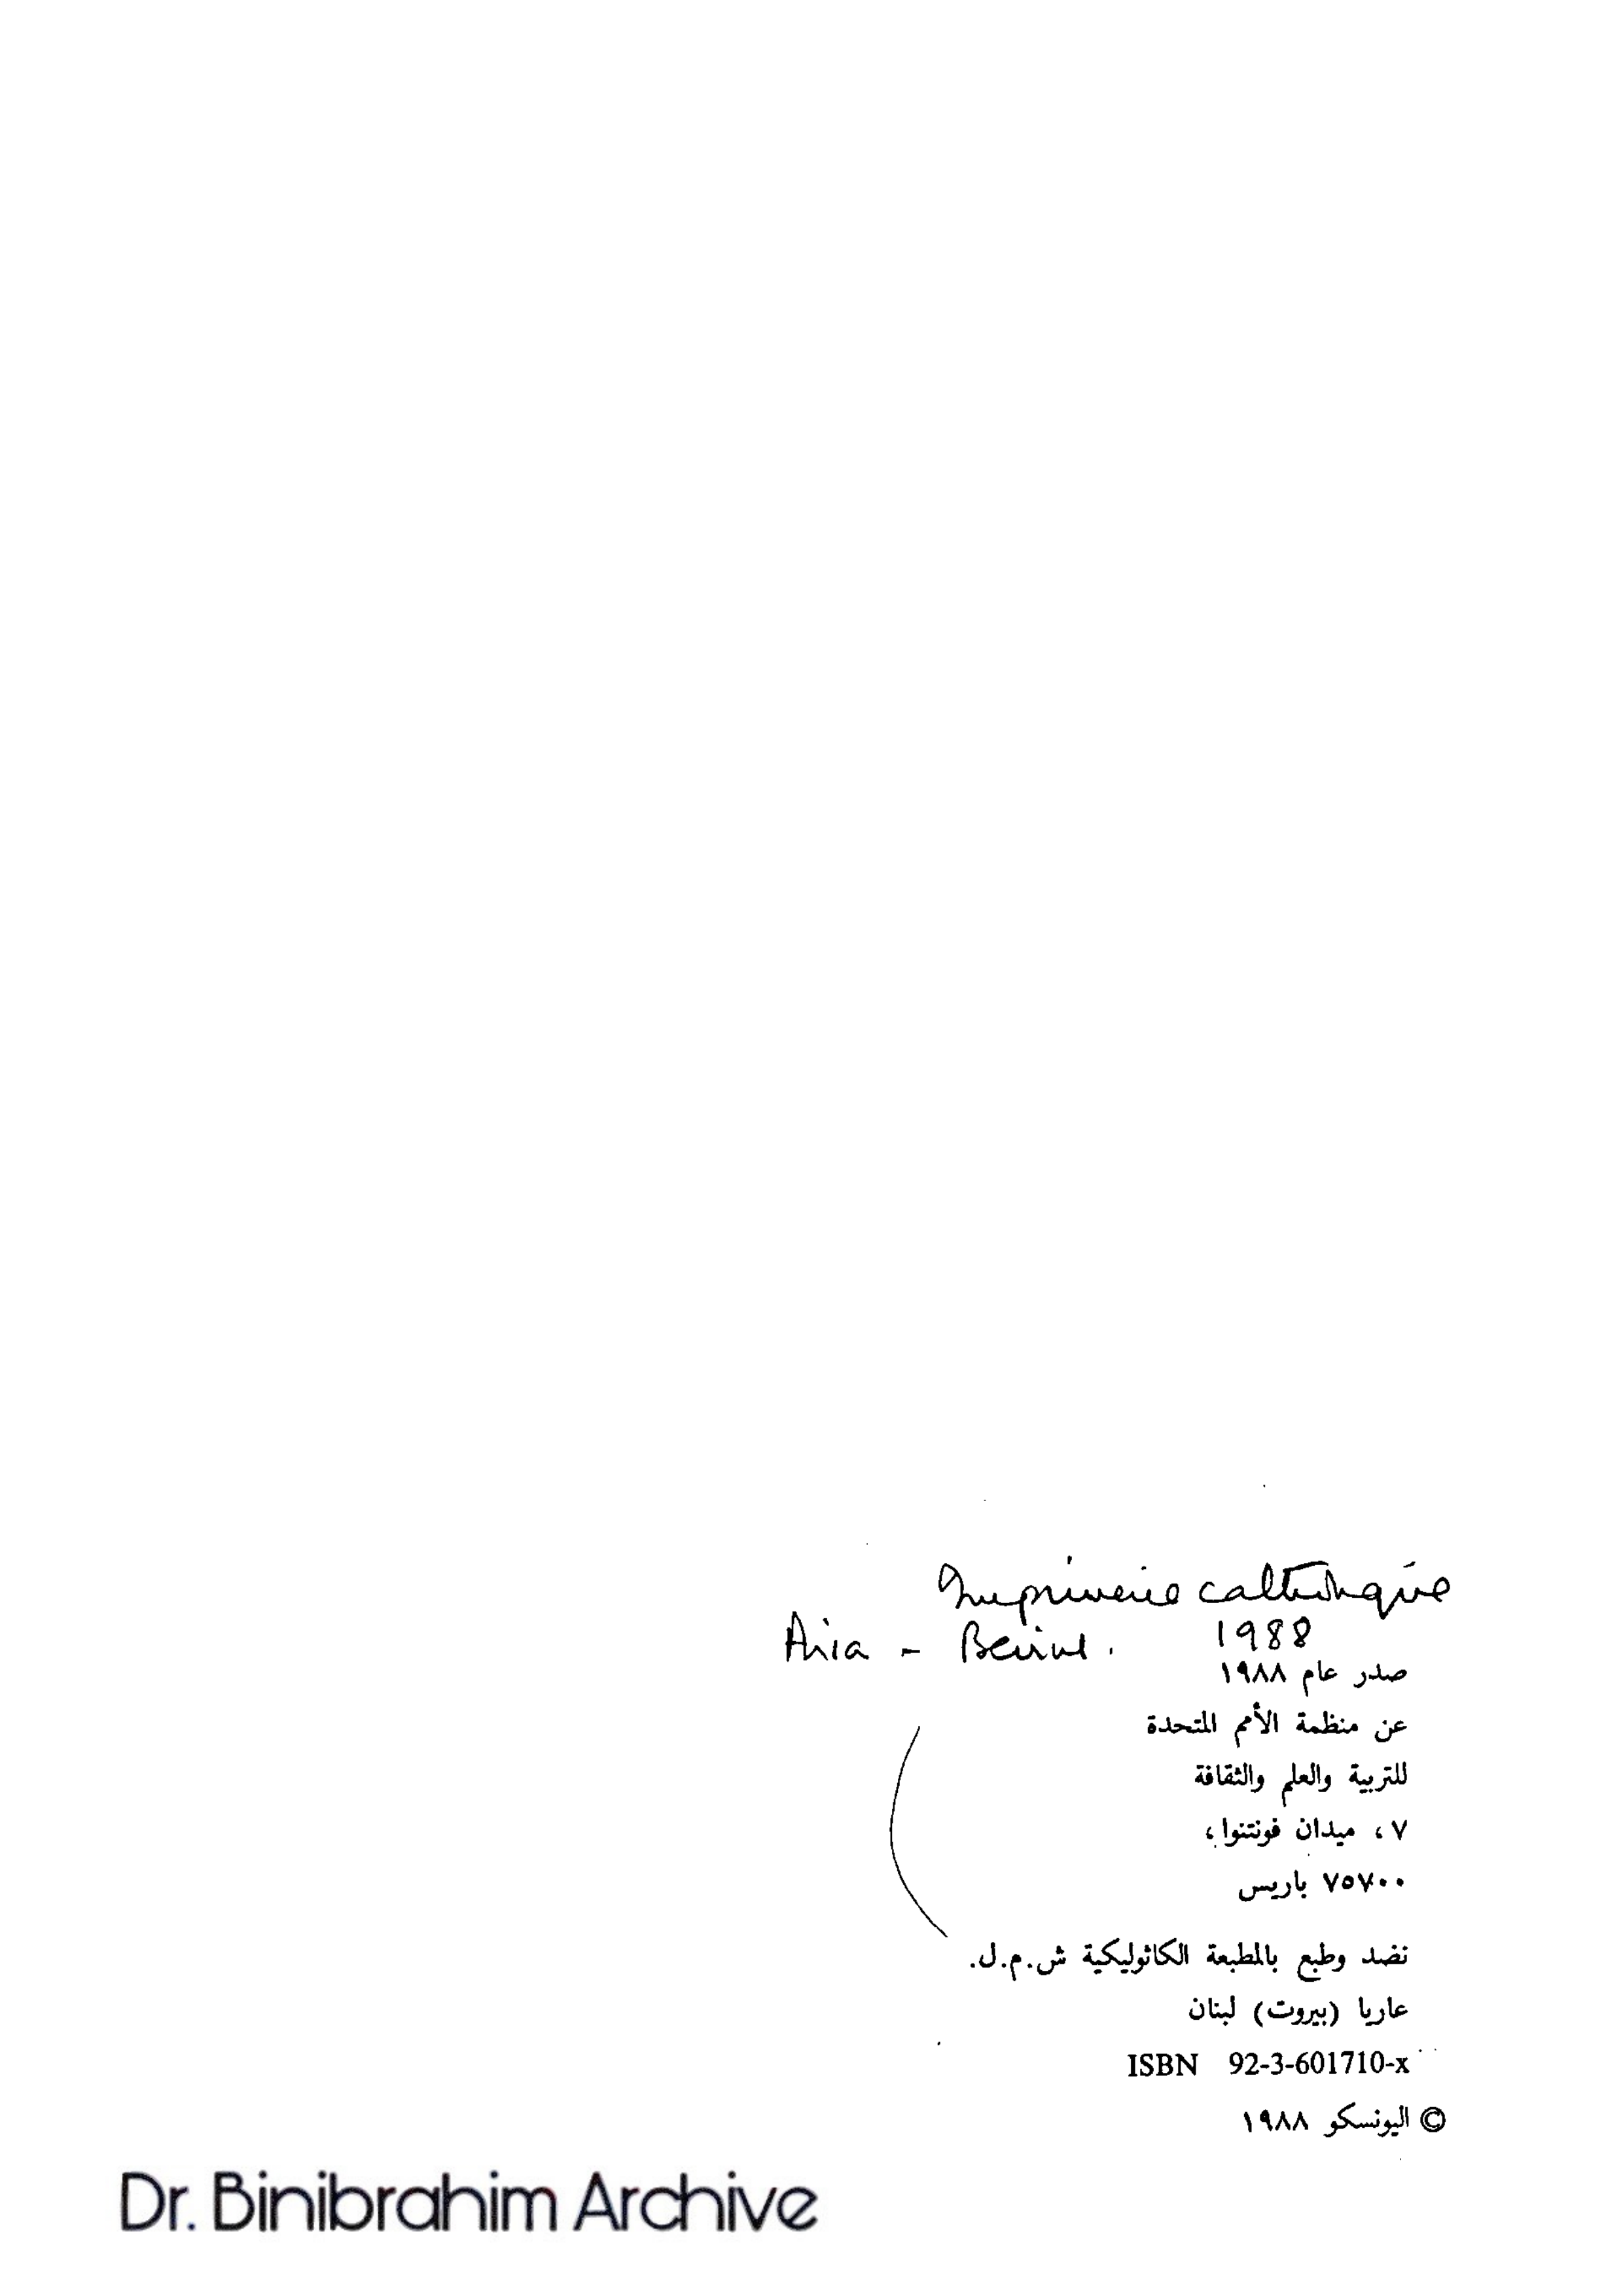 Imprimerie catholique
Aria - Beirut. 1988
صدر عام ١٩٨٨
عن منظمة الأمم المتحدة
للتربية والعلم والثقافة
٧، ميدان فونتنوا،
٧٥٧٠٠ باريس
نضد وطبع بالمطبعة الكاثوليكية ش.م.ل.
عاريا (بيروت) لبنان
ISBN 92-3-601710-x
© اليونسكو ١٩٨٨
Dr. Binibrahim Archive